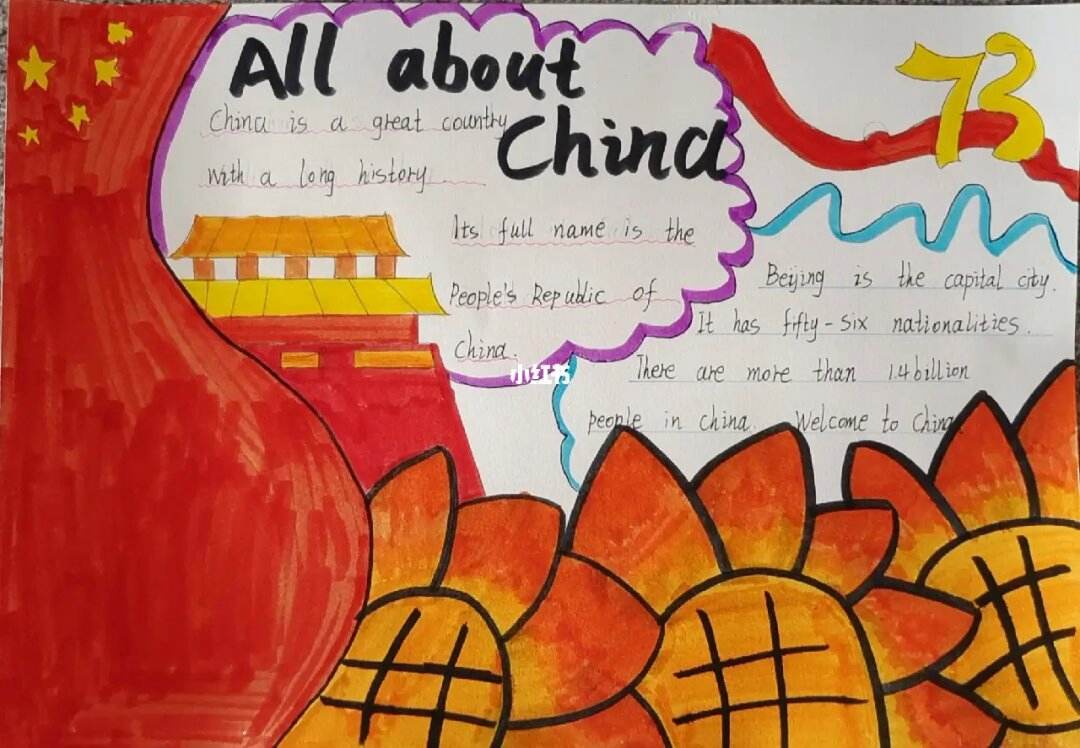 All about
China
China is a great country
with a long history
Its full name is the
People's Republic of
China.
73
Beijing is the capital city.
It has fifty-six nationalities.
There are more than 1.4 billion
people in china. Welcome to China
小红书